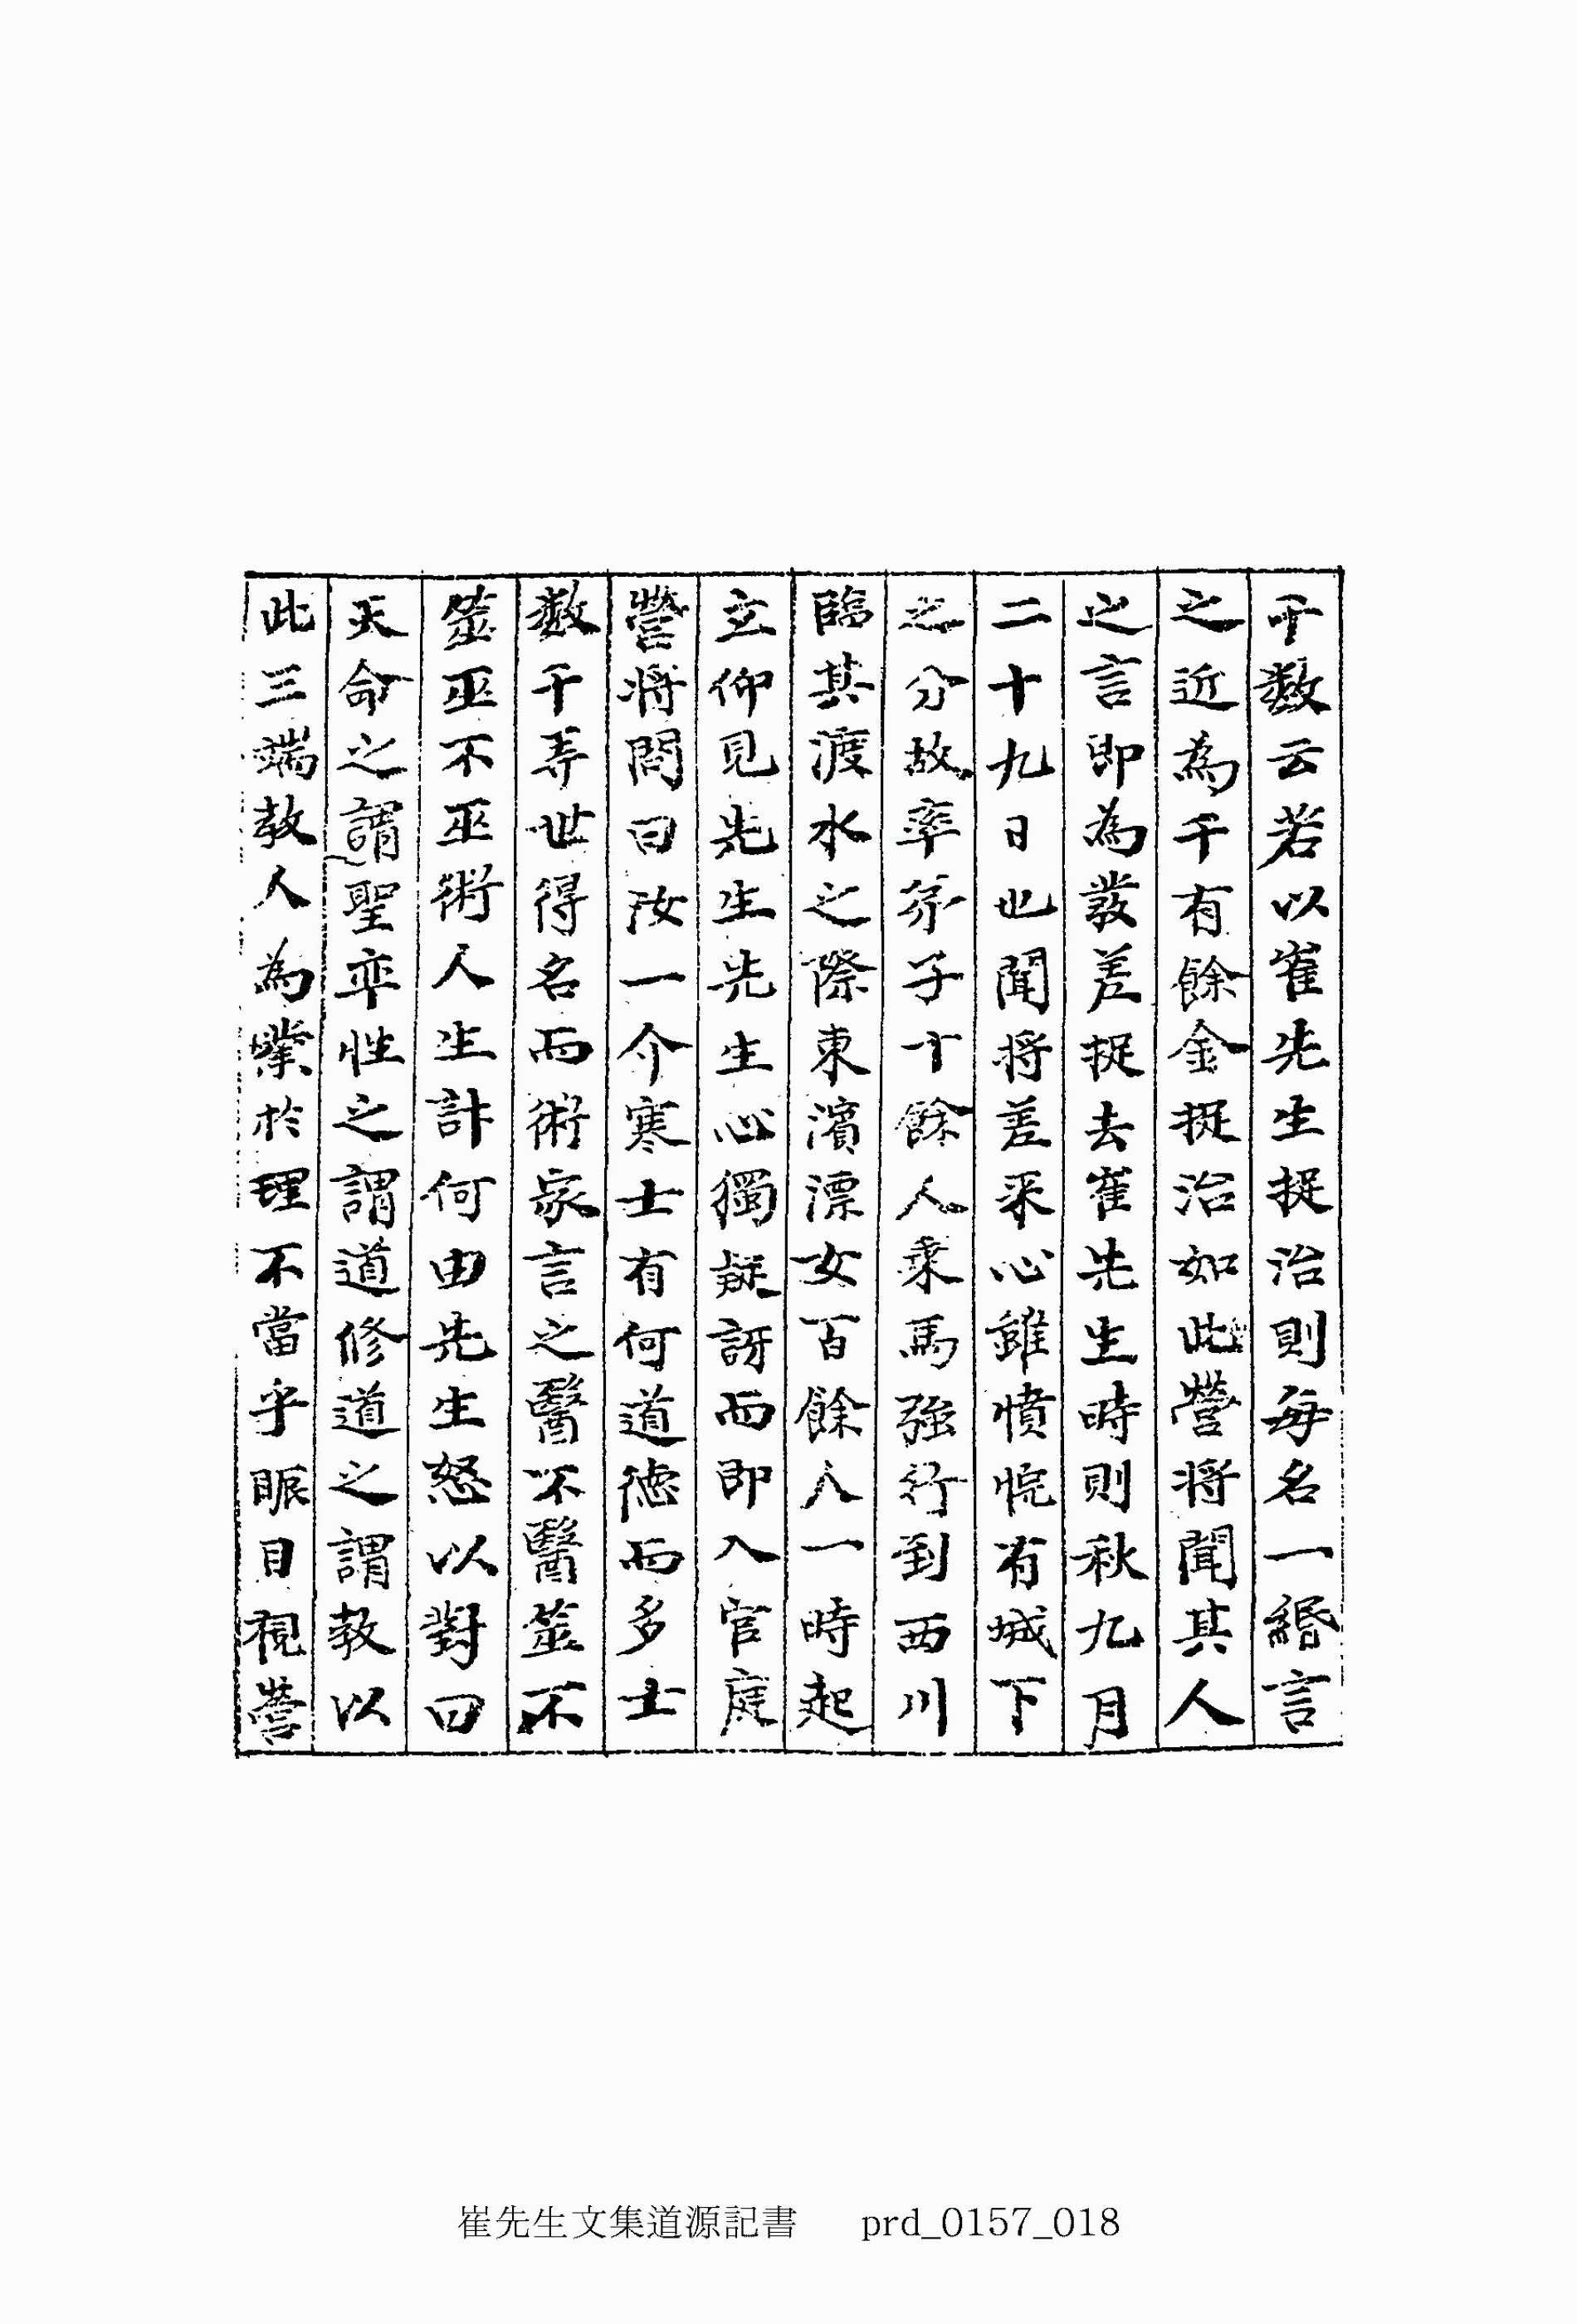 千数云若以崔先生捉治則每名一緡言
之近為千有餘金捉治如此營將聞其人
之言即為發差捉去崔先生時則秋九月
二十九日也聞將差來心雖憤惋有城下
之分故率弟子十餘人乘馬強行到西川
臨其渡水之際東濱漂女百餘人一時起
立仰見先生先生心獨疑訝而即入官庭
營將問曰汝一介寒士有何道德而多士
数千弄世得名而術家言之醫不醫筮不
筮巫不巫術人生計何由先生怒以對曰
天命之謂聖率性之謂道修道之謂教以
此三端教人為業於理不當乎眡目視營
崔先生文集道源記書 prd_0157_018